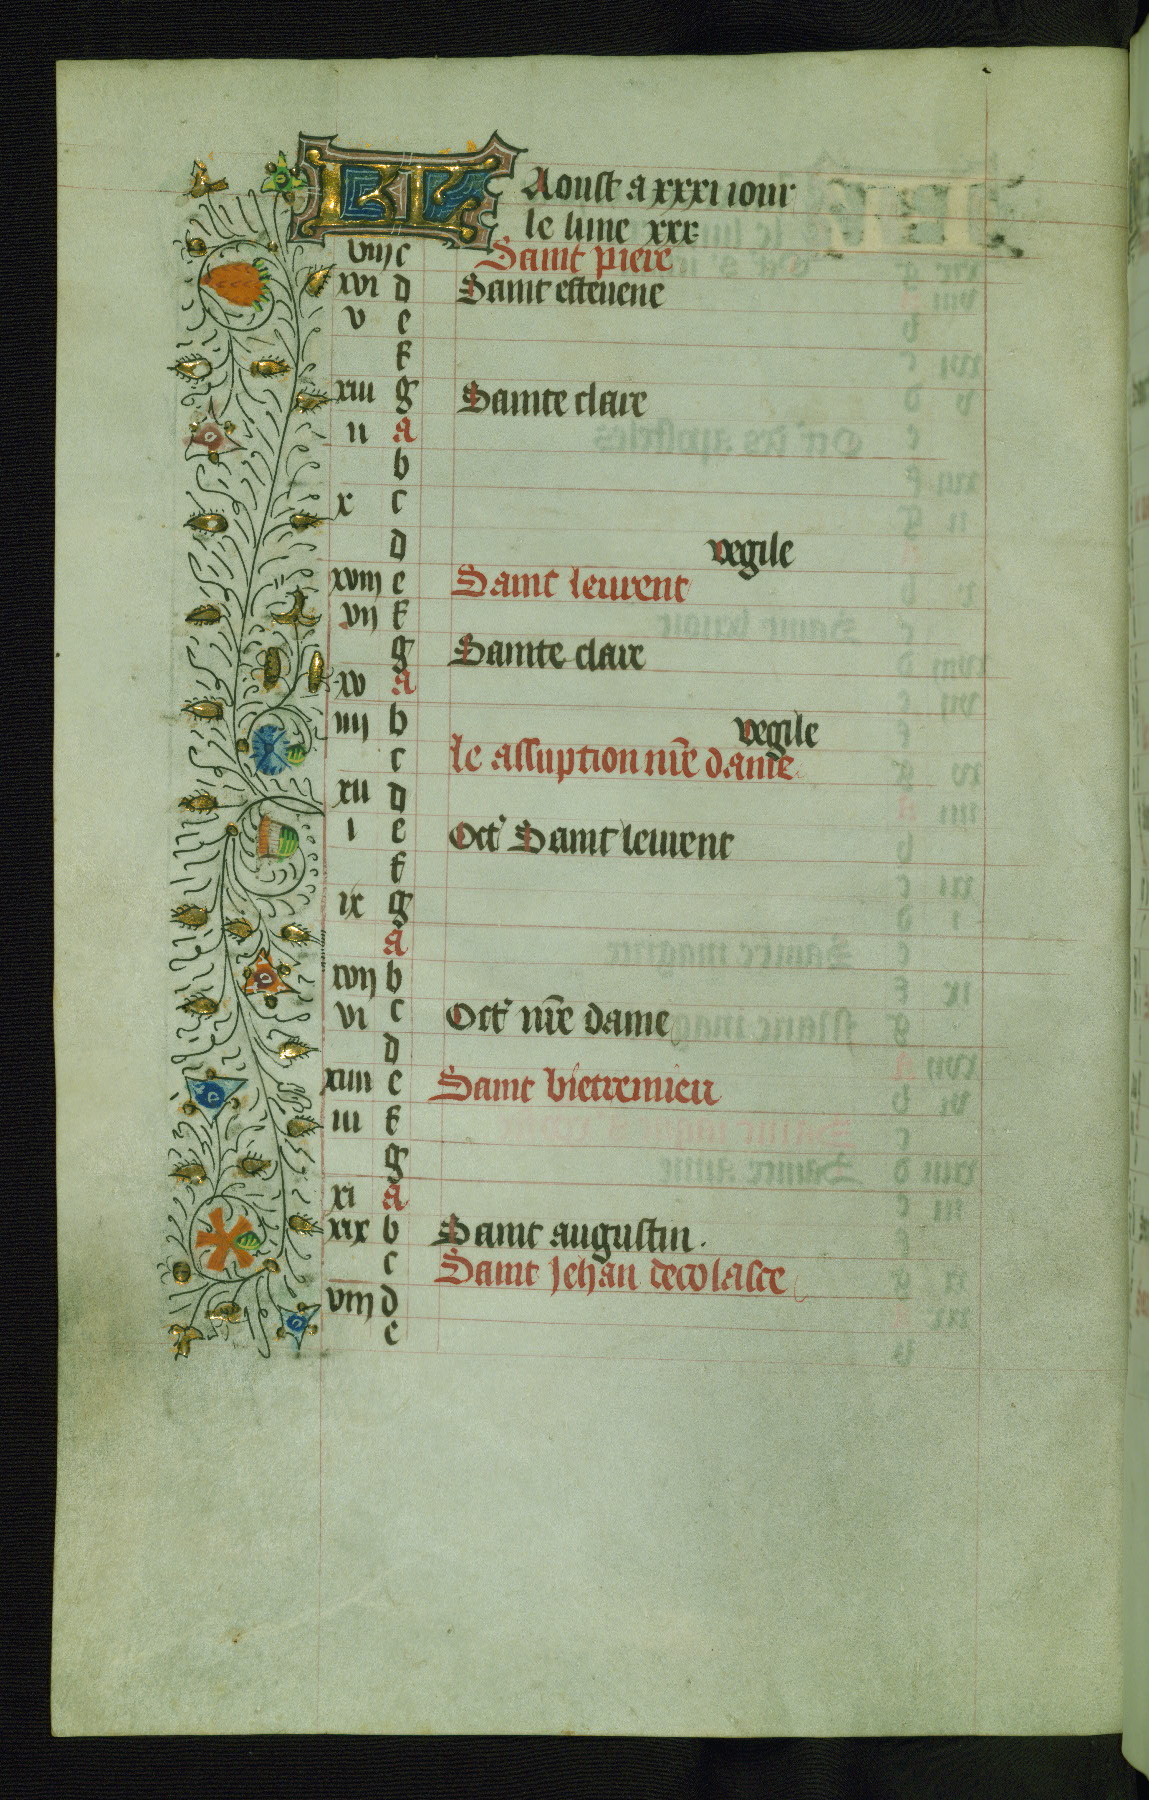 KL Aoust a xxxi iour
le lune xxx
viii c Saint piere
xvi d Saint estevene
v e
f
xiii g Sainte claire
ii a
b
x c
d vegile
xviii e Saint leurent
vii f
g Sainte claire
xv a
iiii b vegile
c le assuption nr̄e dame
xii d
i e Oct' Saint leurent
f
ix g
a
xvii b
vi c Oct' nr̄e dame
d
xiiii e Saint bietremieu
iii f
g
xi a
xix b Saint augustin.
c Saint Jehan decolasce
viii d
e